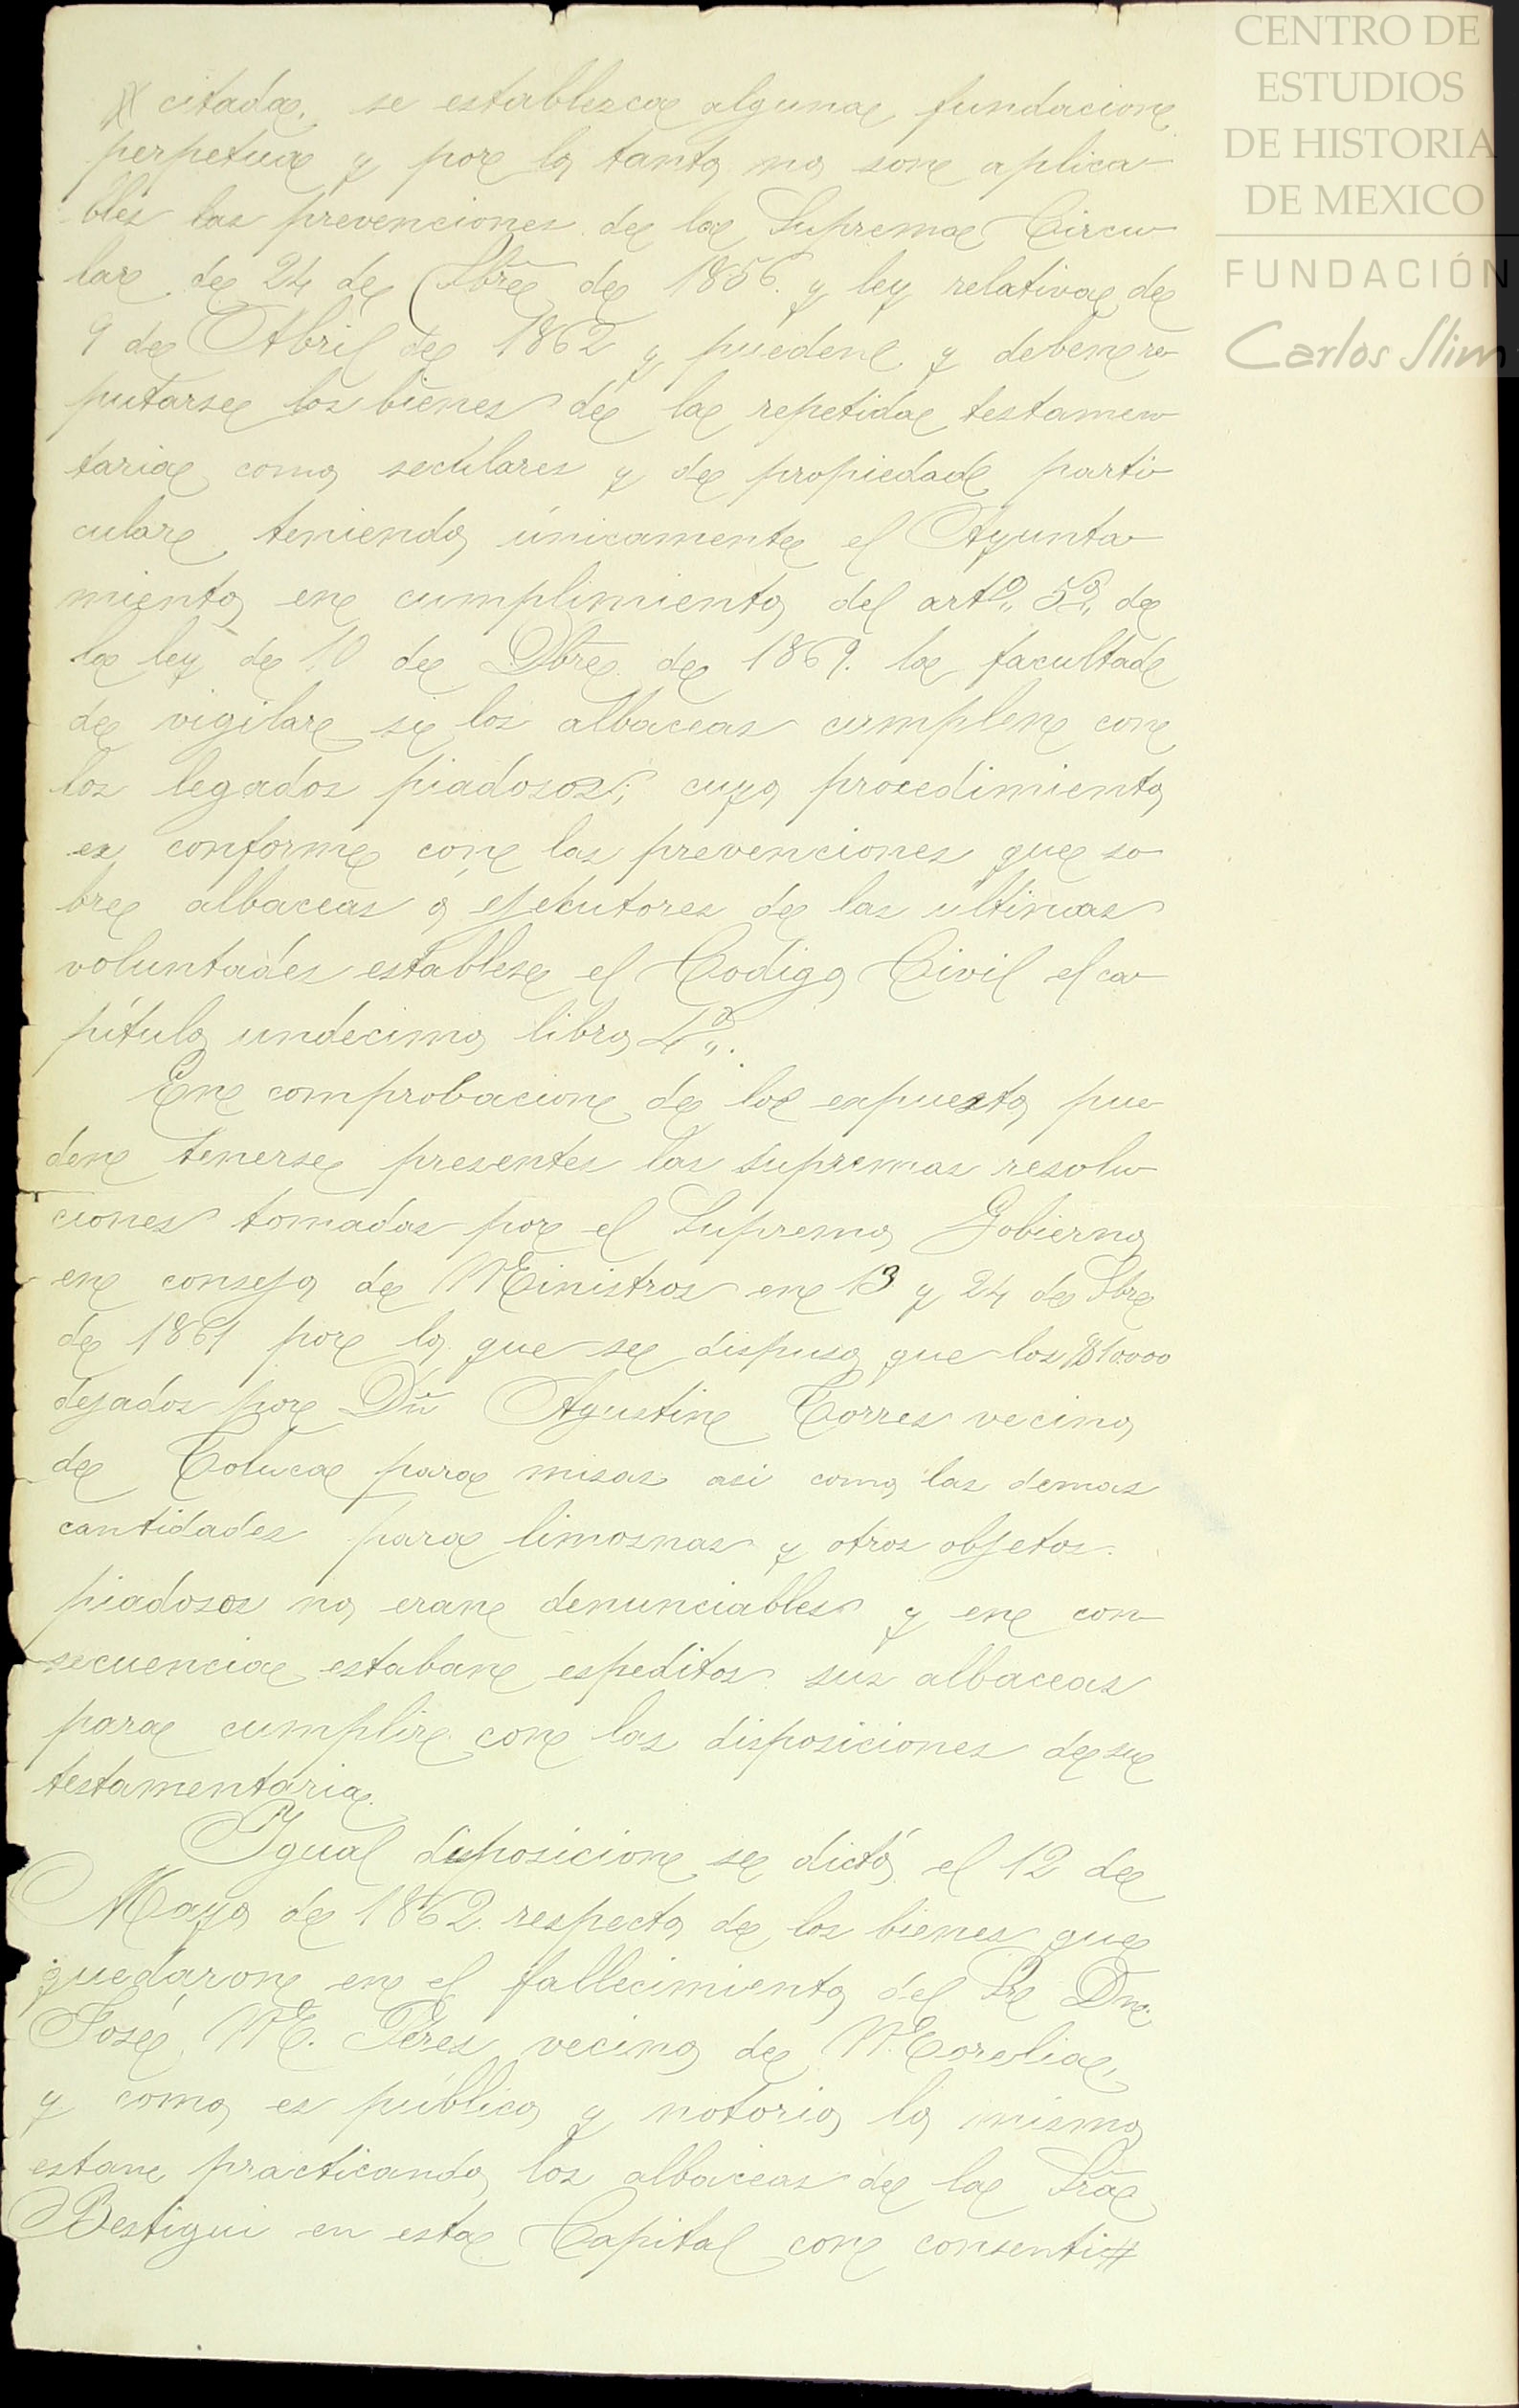 citada, se establezca alguna fundacion
perpetua y por lo tanto no son aplica-
bles las prevenciones de la Suprema Circu-
lar de 24 de Sbre de 1856. y ley relativa de
9 de Abril de 1862 y pueden y deben re-
putarse los bienes de la repetida testamen-
taria como seculares y de propiedad parti-
cular teniendo únicamente el Ayunta-
miento en cumplimiento del artº 5º de
la ley de 10 de Dbre de 1869. la facultad
de vigilar si los albaceas cumplen con
los legados piadosos; cuyo procedimiento
es conforme con las prevenciones que so-
bre albaceas o ejecutores de las ultimas
voluntades establese el Codigo Civil el ca-
pítulo undecimo libro 4º.
En comprobacion de lo expuesto pue-
den tenerse presentes las supremas resolu-
ciones tomadas por el Supremo Gobierno
en consejo de Ministros en 13 y 24 de Sbre
de 1861 por lo que se dispuso que los $10.000
dejados por Dn Agustin Torres vecino
de Toluca para misas asi como las demas
cantidades para limosnas y otros objetos
piadosos no eran denunciables y en con-
secuencia estaban espeditos sus albaceas
para cumplir con las disposiciones de su
testamentaria.
Igual disposicion se dictó el 12 de
Mayo de 1862. respecto de los bienes que
quedaron en el fallecimiento del Sr Dn.
José M. Pérez vecino de Morelia,
y como es público y notorio lo mismo
estan practicando los albaceas de la Sra
Bestigui en esta Capital con consenti#
CENTRO DE
ESTUDIOS
DE HISTORIA
DE MEXICO
FUNDACIÓN
Carlos Slim